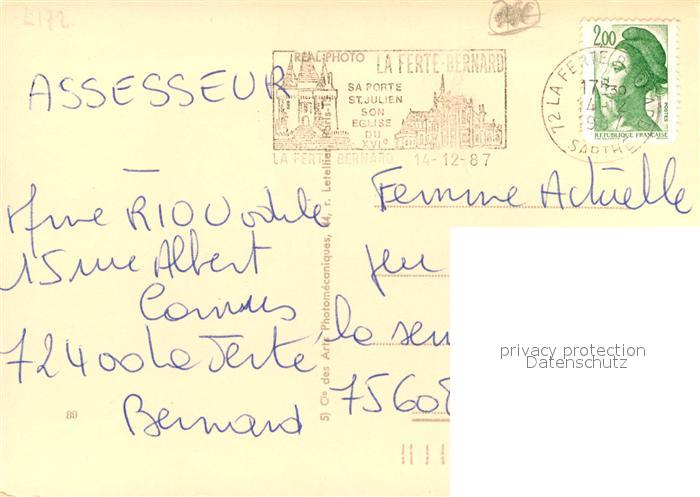 L172
ASSESSEUR
REAL-PHOTO
LA FERTE-BERNARD
SA PORTE
ST.JULIEN
SON
EGLISE
DU
XVIe
LA FERTE BERNARD 14-12-87
72 LA FERTE
17H30
14-12
SARTHE
2,00
POSTES
REPUBLIQUE FRANÇAISE
Mme RIOU odile
15 rue Albert
Camus
72400 La Ferté
Bernard
Femme Actuelle
Jeu
la sem
7560
5) Cie des Arts Photomécaniques, 44, r. Letellier, Paris-
89
privacy protection
Datenschutz